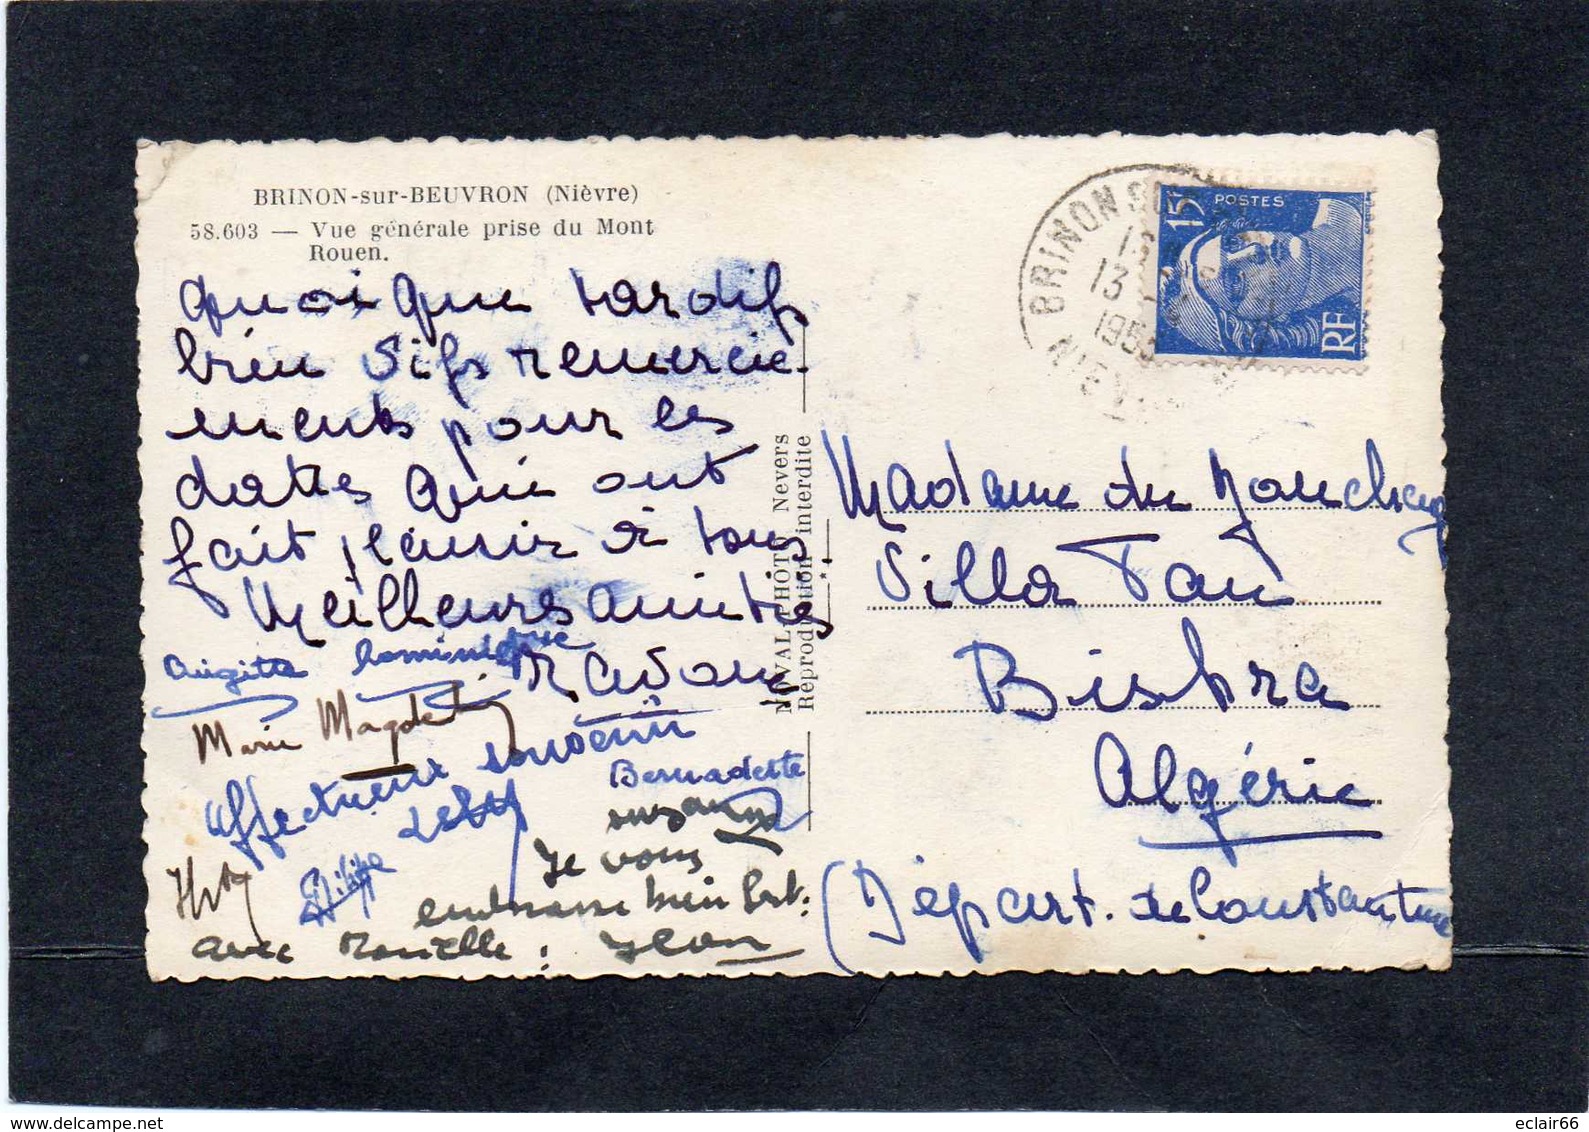 BRINON-sur-BEUVRON (Nièvre)
58.603 — Vue générale prise du Mont
Rouen.
quoique tardifs
bien vifs remercie-
ments pour les
dattes qui ont
fait plaisir à tous
Meilleures amitiés
Brigitte Dominique
Marie Magdel
affectueux souvenir
Bernadette
Suzanne
Philippe
Je vous
embrasse bien fort.
avec : Jean
NOVAL PHOT. Nevers
Reproduction interdite
BRINON SUR
13
195
NIEVRE
15F POSTES
RF
Madame du Jonchay
Villa Pau
Biskra
Algérie
(Départ. de Constantine
eclair66